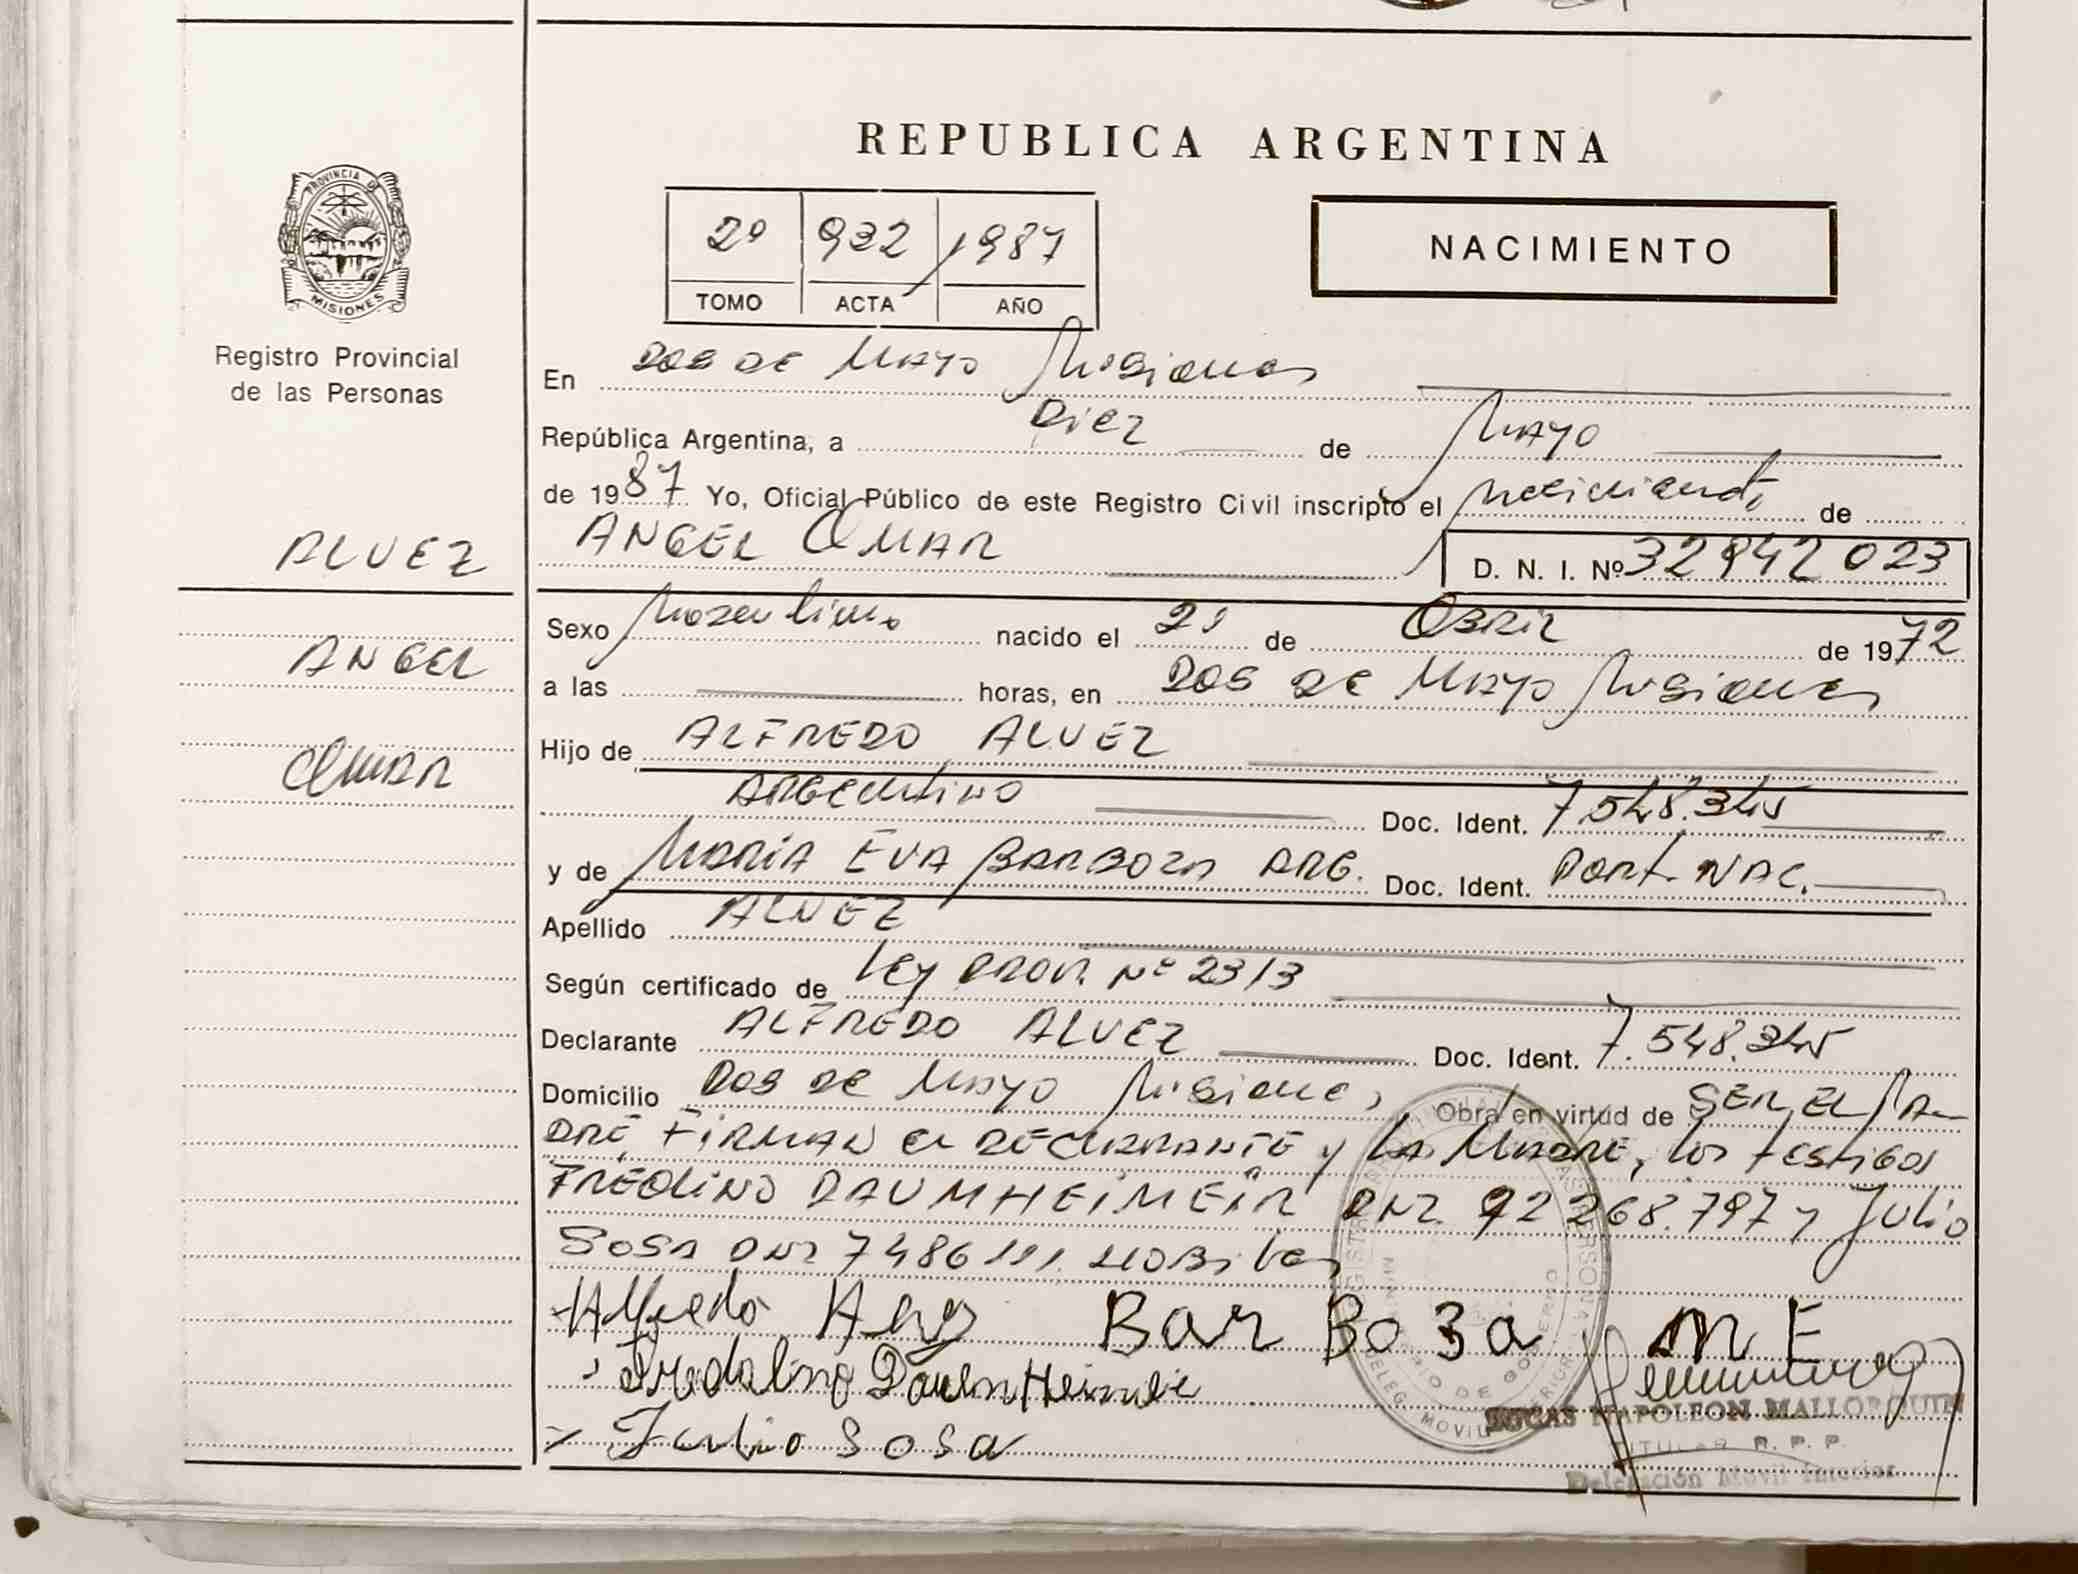 REPUBLICA ARGENTINA
2º 932 1987
TOMO ACTA AÑO
NACIMIENTO
PROVINCIA DE
MISIONES
Registro Provincial
de las Personas
En DOS DE MAYO Misiones
República Argentina, a Diez de MAYO
de 1987 Yo, Oficial Público de este Registro Civil inscripto el Nacimiento de
ALVEZ
ANGEL OMAR
D. N. I. Nº 32942023
ANGEL
OMAR
Sexo Masculino nacido el 21 de ABRIL de 1972
a las horas, en DOS DE MAYO Misiones
Hijo de ALFREDO ALVEZ
ARGENTINO Doc. Ident. 7.548.345
y de MARIA EVA BARBOZA ARG. Doc. Ident. PART. NAC.
Apellido ALVEZ
Según certificado de Ley PROV. Nº 2313
Declarante ALFREDO ALVEZ Doc. Ident. 7.548.345
Domicilio DOS DE MAYO Misiones Obra en virtud de SER EL PA-
DRE FIRMAN el DECLARANTE y LA MADRE, los testigos
FREOLINO DAUMHEIMEIR DNI. 92268.797 y JULIO
SOSA DNI 7486111. HOBiles
Alfredo BarBoza M E
Julio Sosa
LUCAS NAPOLEON MALLORQUIN
TITULAR R. P. P.
Delegación Movil Interior